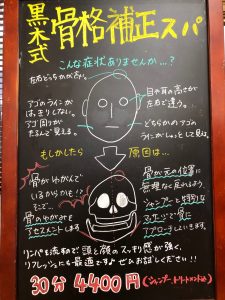 黒木式 骨格補正スパ
こんな症状ありませんか…?
左右どっちかが
目や耳の高さが
左右で違う。
アゴのラインが
はっきりしない。
アゴ回りが
たるんで見える。
どちらかのアゴの
ラインがシュッとして見える。
もしかしたら
原因は…
骨がゆがんで
いるからかも!?
そこで…
骨のゆがみを
アセスメントします
骨が元の位置に
無理なく戻れるよう、
シャンプーと特別な
マッサージで骨に
アプローチしていきます。
リンパも流れるので頭と顔のスッキリ感が強く、
リフレッシュにも最適です♪ぜひお試しください!!
30分 4400円 (シャンプー・トリートメント込)